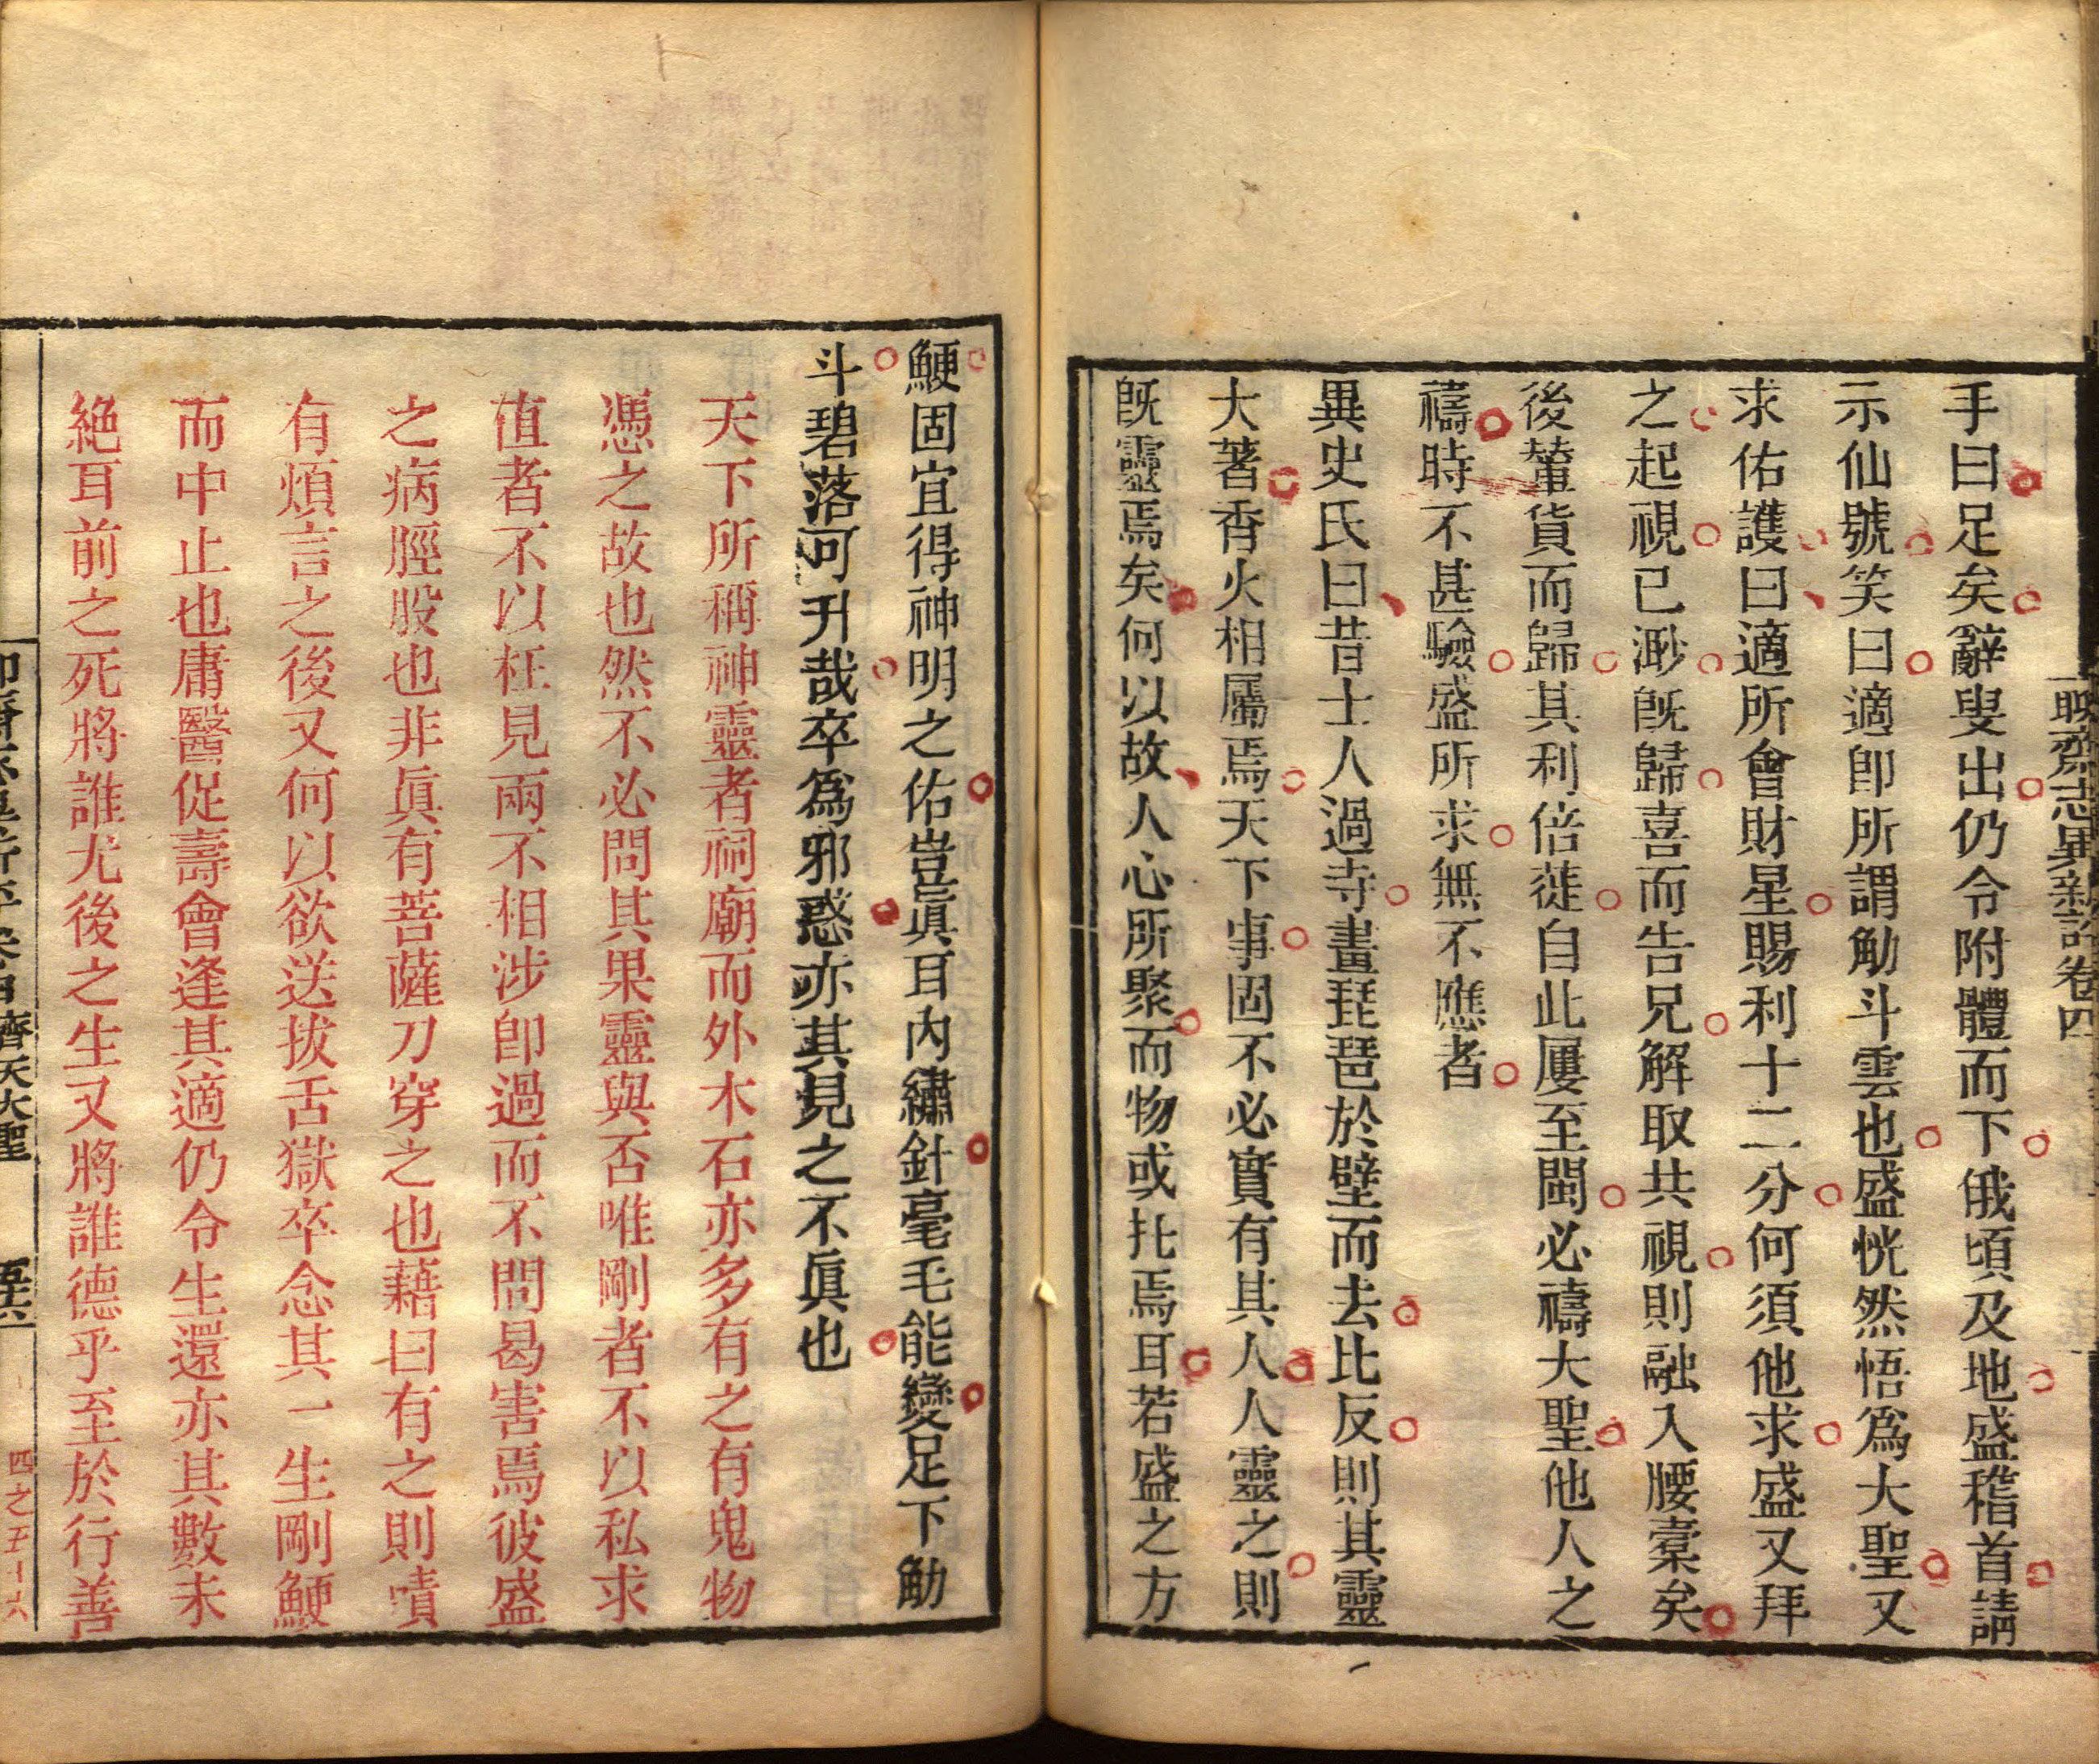 聊齋志異新評卷四
手曰足矣辭叟出仍令附體而下俄頃及地盛稽首請
示仙號笑曰適即所謂觔斗雲也盛恍然悟爲大聖又
求佑護曰適所會財星賜利十二分何須他求盛又拜
之起視已渺旣歸喜而告兄解取共視則融入腰橐矣
後輦貨而歸其利倍蓰自此屢至閩必禱大聖他人之
禱時不甚驗盛所求無不應者
異史氏曰昔士人過寺畫琵琶於壁而去比反則其靈
大著香火相屬焉天下事固不必實有其人人靈之則
旣靈焉矣何以故人心所聚而物或托焉耳若盛之方
鯁固宜得神明之佑豈眞耳內繡針毫毛能變足下觔
斗碧落可升哉卒爲邪惑亦其見之不眞也
天下所稱神靈者祠廟而外木石亦多有之有鬼物
憑之故也然不必問其果靈與否唯剛者不以私求
值者不以枉見兩不相涉卽過而不問曷害焉彼盛
之病脛股也非眞有菩薩刀穿之也藉曰有之則嘖
有煩言之後又何以欲送拔舌獄卒念其一生剛鯁
而中止也庸醫促壽會逢其適仍令生還亦其數未
絶耳前之死將誰尤後之生又將誰德乎至於行善
齊天大聖
四之五十六